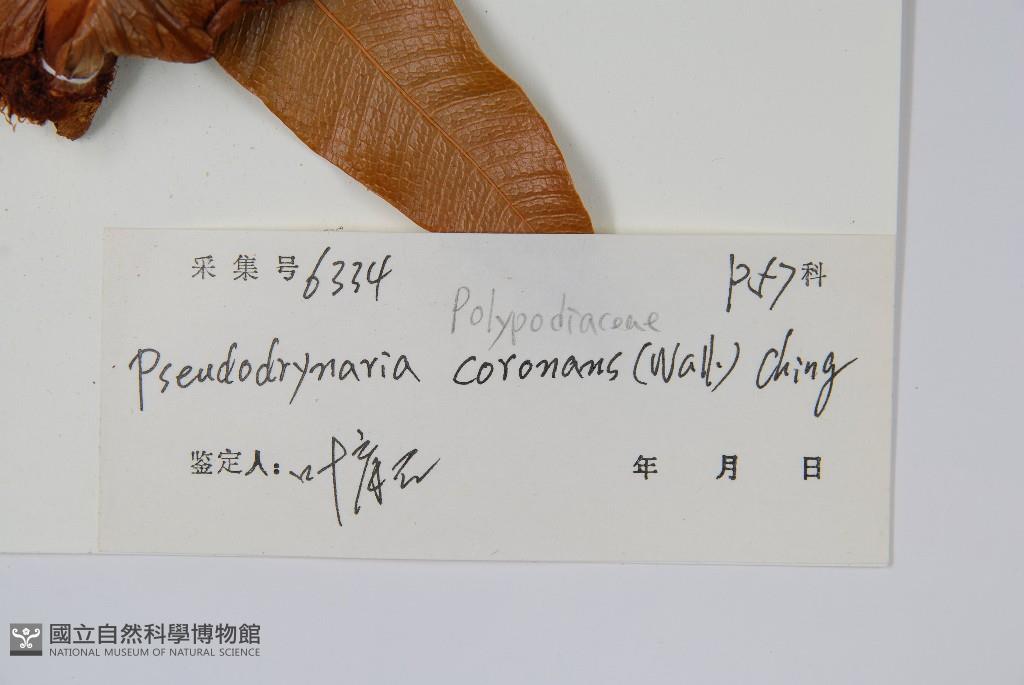 采集号 6334 P57 科
Polypodiaceae
Pseudodrynaria coronans (Wall.) Ching
鉴定人: 叶
年 月 日
國立自然科學博物館
NATIONAL MUSEUM OF NATURAL SCIENCE